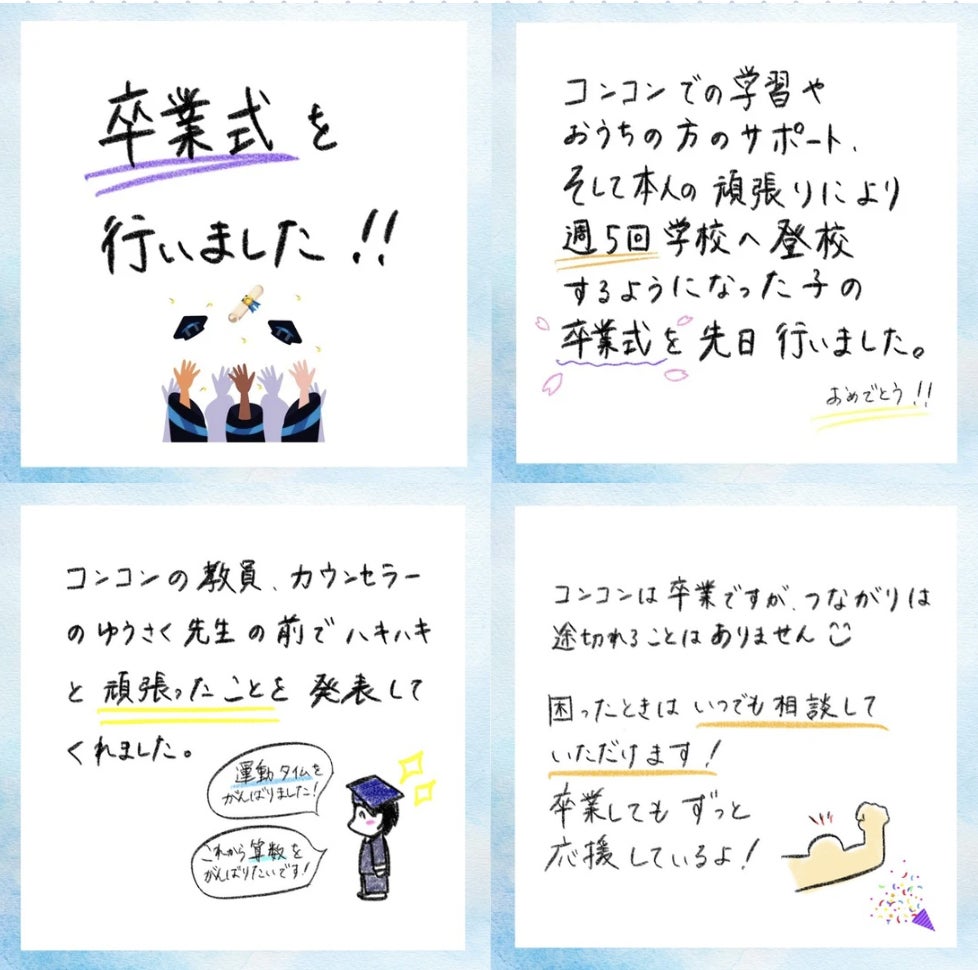 卒業式を
行いました!!
コンコンでの学習や
おうちの方のサポート、
そして本人の頑張りにより
週5回学校へ登校
するようになった子の
卒業式を先日行いました。
おめでとう!!
コンコンの教員、カウンセラー
のゆうさく先生の前でハキハキ
と頑張ったことを発表して
くれました。
運動タイムを
がんばりました!
これから算数を
がんばりたいです!
コンコンは卒業ですが、つながりは
途切れることはありません
困ったときはいつでも相談して
いただけます!
卒業してもずっと
応援しているよ!